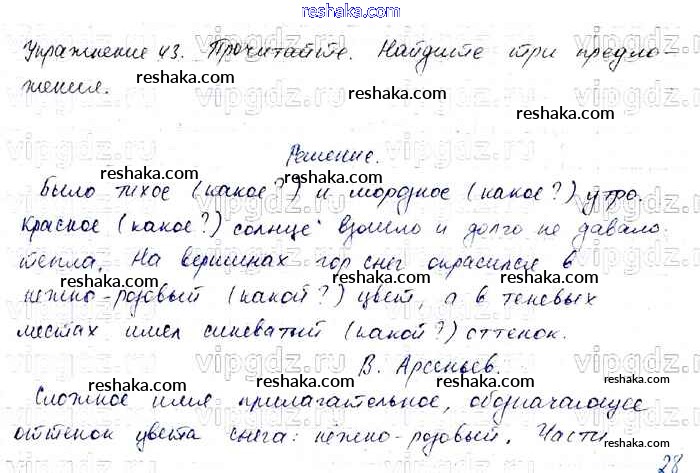 reshaka.com
Упражнение 43. Прочитайте. Найдите три предло-
жения.
reshaka.com
reshaka.com
Решение.
reshaka.com
reshaka.com
Было тихое (какое?) и морозное (какое?) утро.
Красное (какое?) солнце взошло и долго не давало
reshaka.com
тепла. На вершинах гор снег окрасился в
нежно-розовый (какой?) цвет, а в теневых
reshaka.com
reshaka.com
местах имел синеватый (какой?) оттенок.
В. Арсеньев.
reshaka.com
reshaka.com
Сложное имя прилагательное, обозначающее
оттенок цвета снега: нежно-розовый. Части
reshaka.com
reshaka.com
28
vipgdz.ru